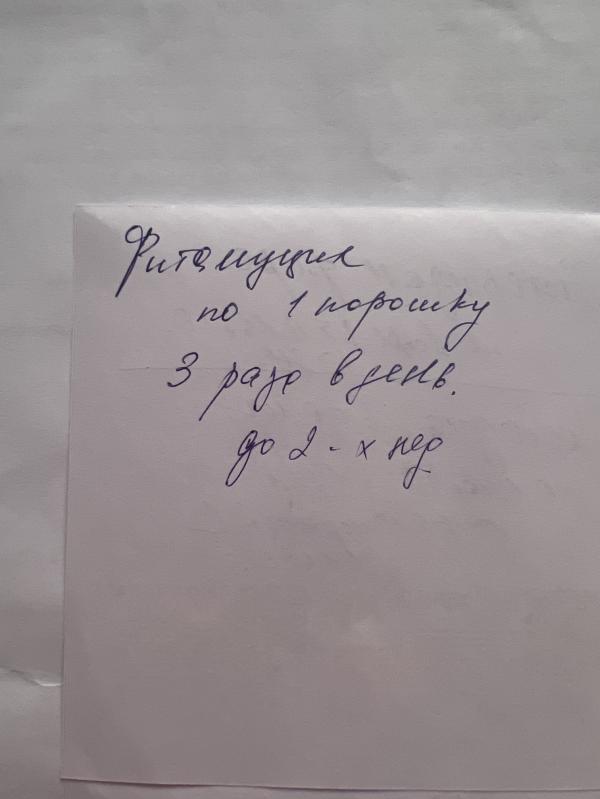 Фитомуцил
по 1 порошку
3 раза в день.
до 2-х нед